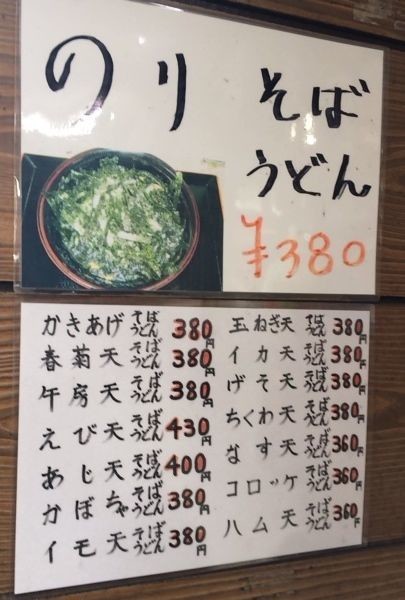 のり そば
うどん
¥380
かきあげ そば うどん 380円
春菊天 そば うどん 380円
午房天 そば うどん 380円
えび天 そば うどん 430円
あじ天 そば うどん 400円
かぼちゃ そば うどん 380円
イモ天 そば うどん 380円
玉ねぎ天 そば うどん 380円
イカ天 そば うどん 380円
げそ天 そば うどん 380円
ちくわ天 そば うどん 380円
なす天 そば うどん 360円
コロッケ そば うどん 360円
ハム天 そば うどん 360円